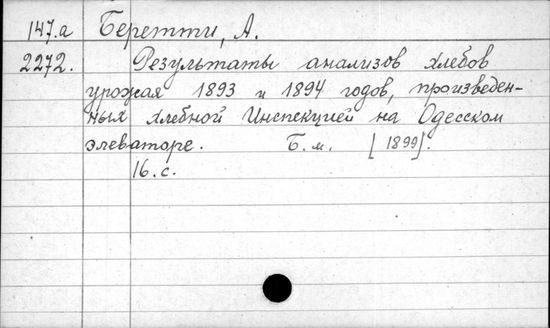 147.а Беретти, А.
2272. Результаты анализов хлебов
урожая 1893 и 1894 годов, произведен-
ных Хлебной Инспекцией на Одесском
элеваторе. Б.м. [1899].
16.с.